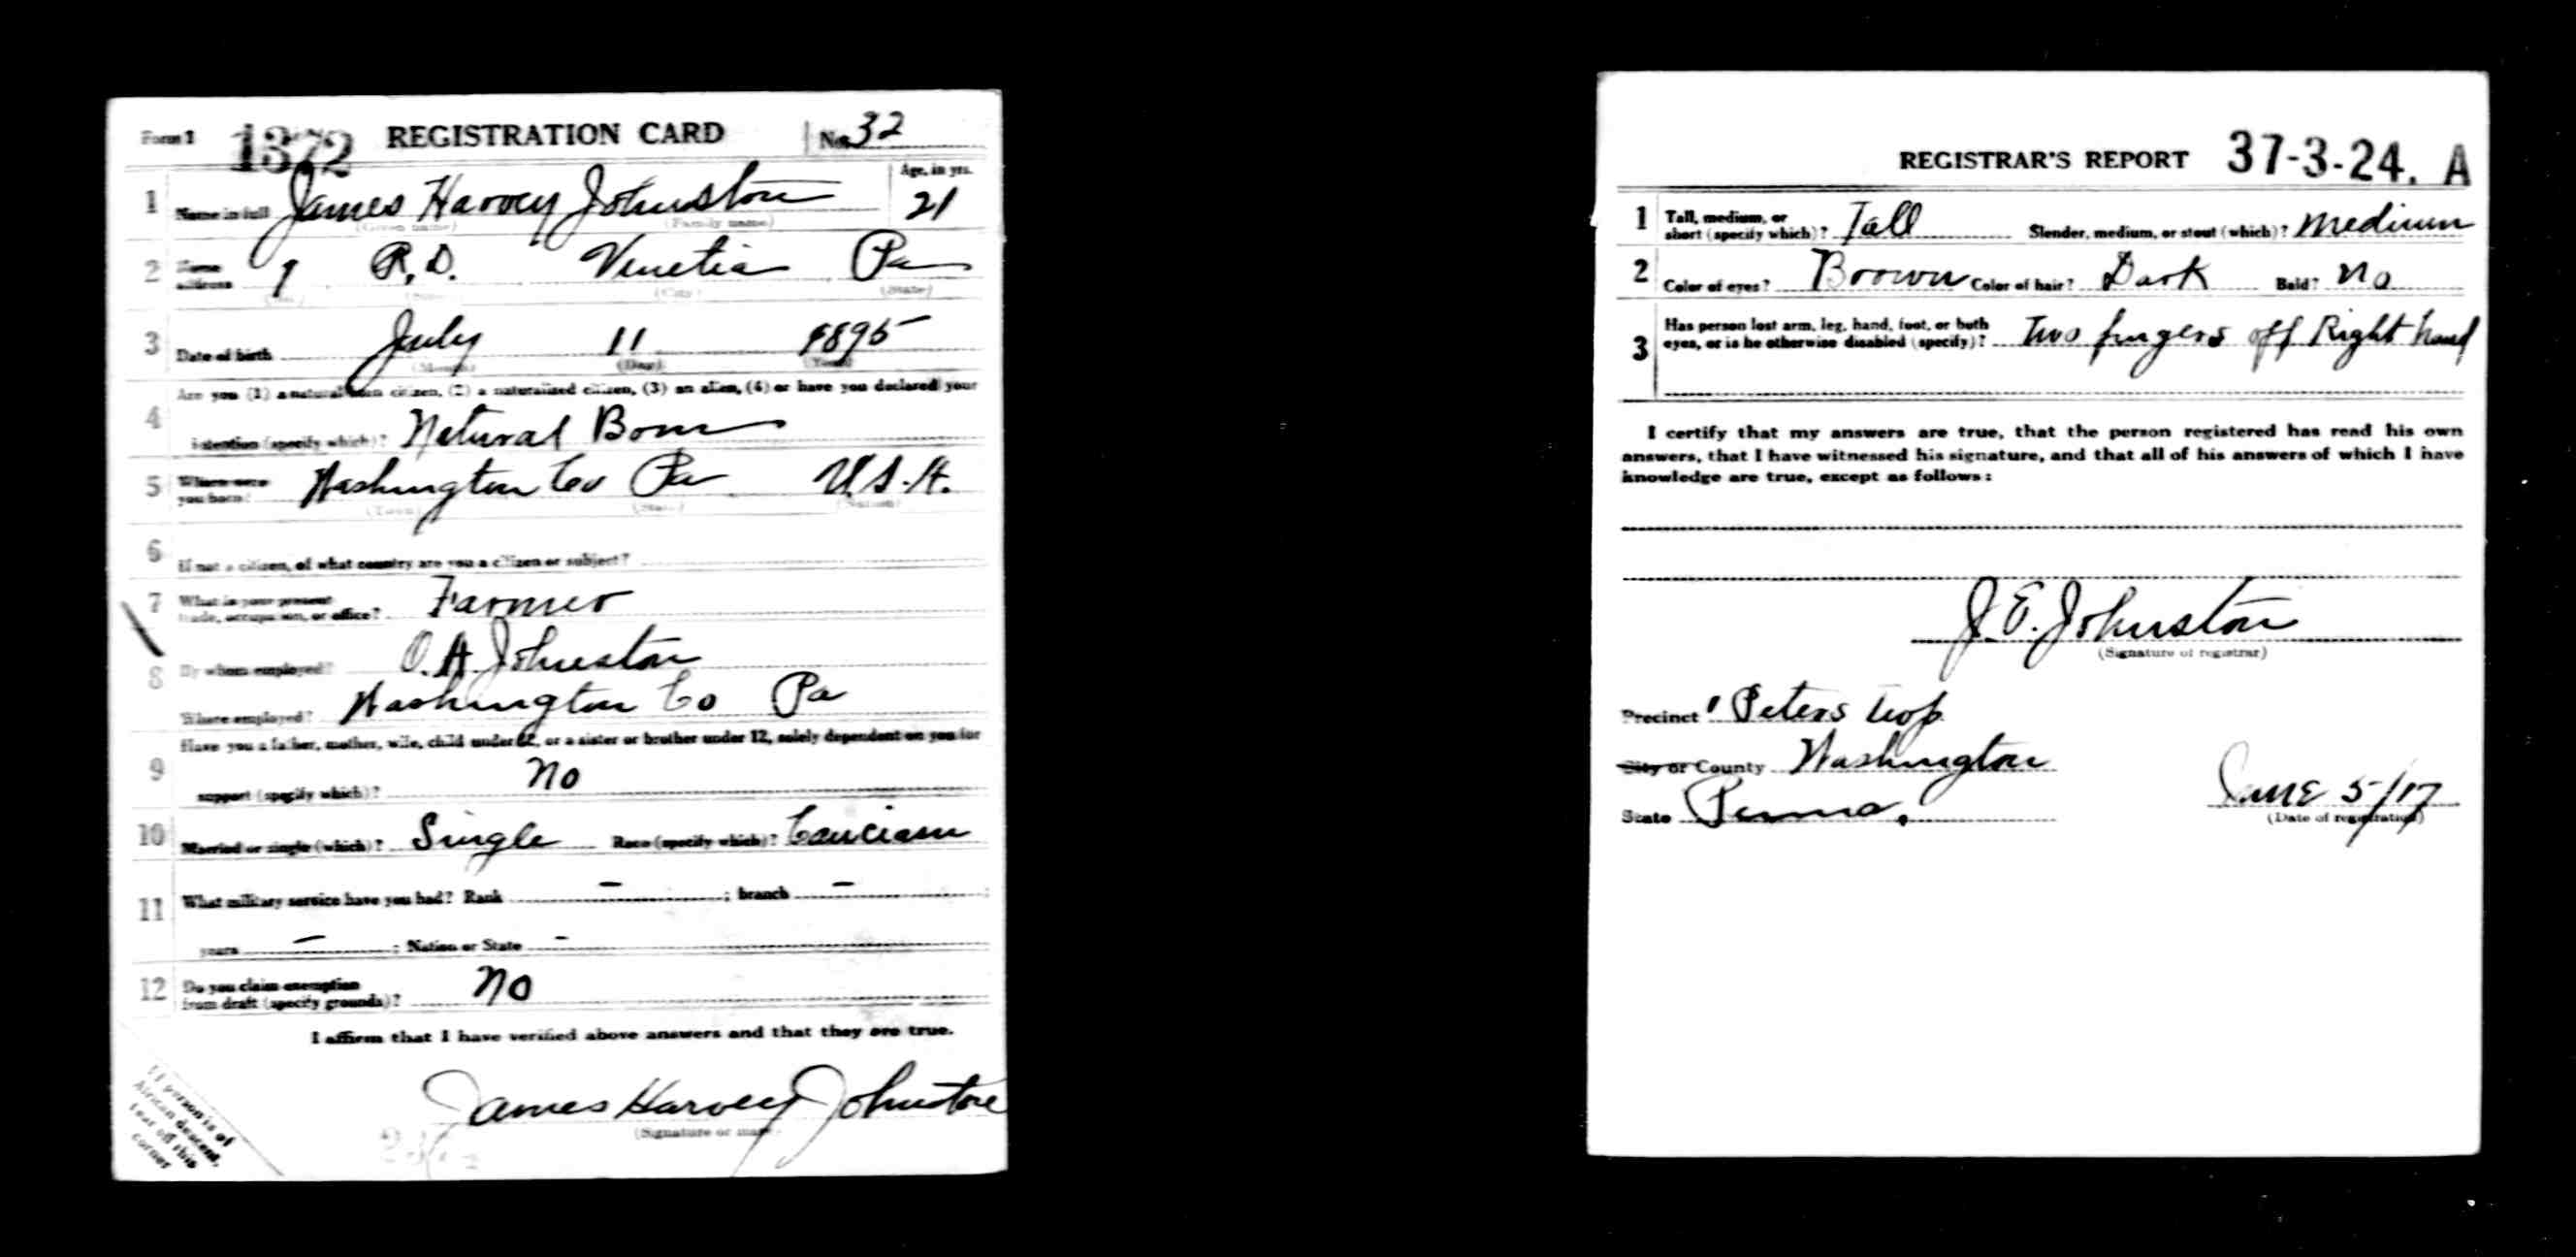 Form 1 1372 REGISTRATION CARD No. 32
1 Name in full James Harvey Johnston Age, in yrs. 21
(Given name) (Family name)
2 Home address 1 R. D. Venetia Pa
(No.) (Street) (City) (State)
3 Date of birth July 11 1895
(Month) (Day) (Year)
Are you (1) a natural born citizen, (2) a naturalized citizen, (3) an alien, (4) or have you declared your
4 intention (specify which)? Natural Born
5 Where were you born? Washington Co Pa U.S.A.
(Town) (State) (Nation)
6 If not a citizen, of what country are you a citizen or subject?
7 What is your present trade, occupation, or office? Farmer
8 By whom employed? O. A. Johnston
Where employed? Washington Co Pa
Have you a father, mother, wife, child under 12, or a sister or brother under 12, solely dependent on you for
9 support (specify which)? No
10 Married or single (which)? Single Race (specify which)? Cauciasn
11 What military service have you had? Rank — ; branch — ;
years — ; Nation or State —
12 Do you claim exemption
from draft (specify grounds)? No
I affirm that I have verified above answers and that they are true.
James Harvey Johnston
(Signature or mark)
If person is of
African descent,
tear off this
corner
REGISTRAR'S REPORT 37-3-24. A
1 Tall, medium, or
short (specify which)? Tall Slender, medium, or stout (which)? Medium
2 Color of eyes? Brown Color of hair? Dark Bald? No
3 Has person lost arm, leg, hand, foot, or both
eyes, or is he otherwise disabled (specify)? Two fingers off Right hand
I certify that my answers are true, that the person registered has read his own
answers, that I have witnessed his signature, and that all of his answers of which I have
knowledge are true, except as follows:
J. E. Johnston
(Signature of registrar)
Precinct Peters twp
City or County Washington
State Penna. June 5/17
(Date of registration)